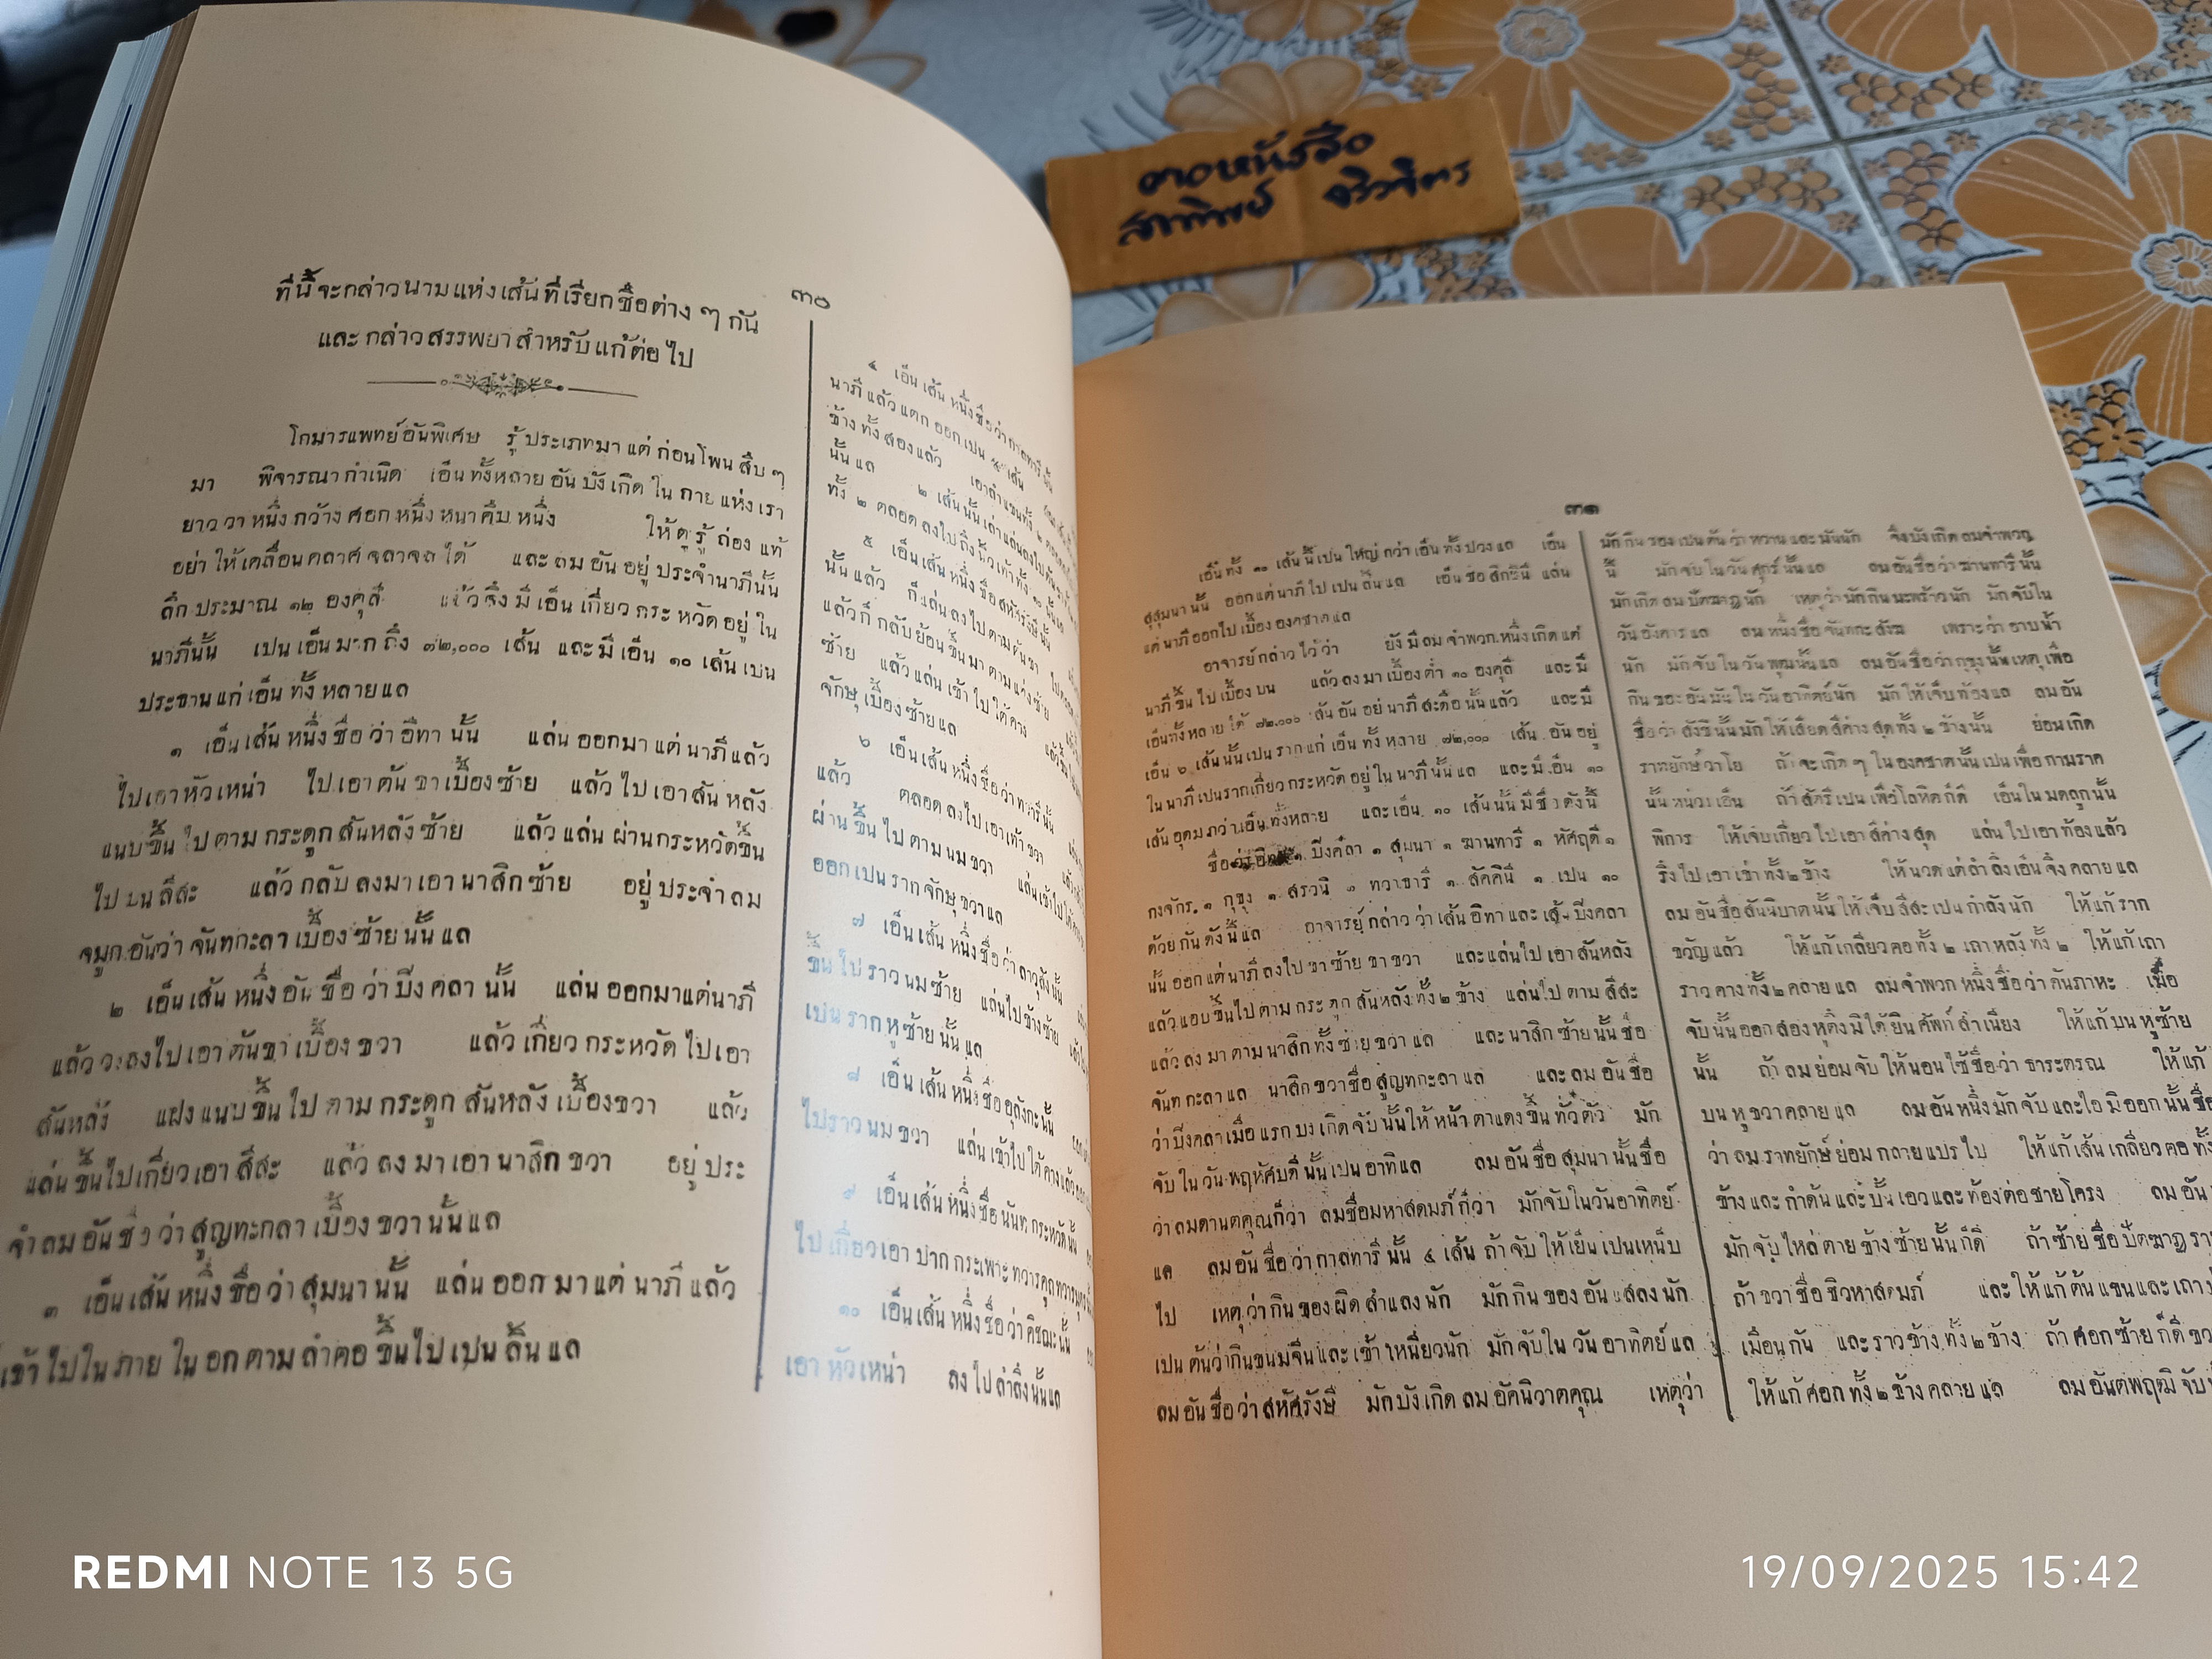 ตาอหนังสือ
สาทิพย์ จริวจิตร
๓๐
ที่นี้จะกล่าวนามแห่งเส้นที่เรียกชื่อต่าง ๆ กัน
และกล่าวสรรพยาสำหรับแก้ต่อไป
โกมารแพทย์อันพิเศษ รู้ประเภทมาแต่ก่อนโพนสืบ ๆ
มา พิจารณากำเนิด เอ็นทั้งหลายอันบังเกิดในกายแห่งเรา
ยาววาหนึ่งกว้างศอกหนึ่งหนาคืบหนึ่ง ให้ดุรู้ถ่องแท้
อย่าให้เคลื่อนคลาศจลาจลได้ และลมอันอยู่ประจำนาภีนั้น
ลึกประมาณ ๑๒ องคุลี แล้วจึงมีเอ็นเกี่ยวกระหวัดอยู่ใน
นาภีนั้น เปนเอ็นมากถึง ๗๒,๐๐๐ เส้น และมีเอ็น ๑๐ เส้นเปน
ประธานแก่เอ็นทั้งหลายแล
๑ เอ็นเส้นหนึ่งชื่อว่าอิทานั้น แล่นออกมาแต่นาภีแล้ว
ไปเอาหัวเหน่า ไปเอาต้นขาเบื้องซ้าย แล้วไปเอาสันหลัง
แนบขึ้นไปตามกระดูกสันหลังซ้าย แล้วแล่นผ่านกระหวัดขึ้น
ไปบนสีสะ แล้วกลับลงมาเอานาสิกซ้าย อยู่ประจำลม
จมูกอันว่าจันทกะลาเบื้องซ้ายนั้นแล
๒ เอ็นเส้นหนึ่งอันชื่อว่าปิงคลานั้น แล่นออกมาแต่นาภี
แล้ววะลงไปเอาต้นขาเบื้องขวา แล้วเกี่ยวกระหวัดไปเอา
สันหลัง แฝงแนบขึ้นไปตามกระดูกสันหลังเบื้องขวา แล้ว
แล่นขึ้นไปเกี่ยวเอาสีสะ แล้วลงมาเอานาสิกขวา อยู่ประ
จำลมอันชื่อว่าสูญทะกลาเบื้องขวานั้นแล
๓ เอ็นเส้นหนึ่งชื่อว่าสุมนานั้น แล่นออกมาแต่นาภีแล้ว
เข้าไปในภายในอกตามลำคอขึ้นไปเปนลิ้นแล
๔ เอ็นเส้นหนึ่งชื่อว่ากาลทารีนั้น
นาภีแล้วแตกออกเปน ๔ เส้น
ข้างทั้งสองแล้ว เอาลำแขนทั้ง ๒
นั้นแล ๒ เส้นนั้นเล่าแล่นลงไป
ทั้ง ๒ ตลอดลงไปถึงนิ้วเท้าทั้ง ๑๐ นั้นแล
๕ เอ็นเส้นหนึ่งชื่อสหัศรังษีนั้น
นั้นแล้ว ก็แล่นลงไปตามต้นขา
แล้วก็กลับย้อนขึ้นมาตามแข้งซ้าย
ซ้าย แล้วแล่นเข้าไปใต้คาง
จักษุเบื้องซ้ายแล
๖ เอ็นเส้นหนึ่งชื่อว่าทวารีนั้น
แล้ว ตลอดลงไปเอาเท้าขวา
ผ่านขึ้นไปตามนมขวา แล่นเข้าไปใต้
ออกเปนรากจักษุขวาแล
๗ เอ็นเส้นหนึ่งชื่อว่าลาวุสังนั้น
ขึ้นไปราวนมซ้าย แล่นไปข้างซ้าย
เปนรากหูซ้ายนั้นแล
๘ เอ็นเส้นหนึ่งชื่ออุลังกะนั้น
ไปราวนมขวา แล่นเข้าไปใต้คางแล้ว
๙ เอ็นเส้นหนึ่งชื่อนันทกระหวัดนั้น
ไปเกี่ยวเอาปากกระเพาะทวารคุถทวาร
๑๐ เอ็นเส้นหนึ่งชื่อว่าคิชฌะนั้น
เอาหัวเหน่า ลงไปลำลึงนั้นแล
๓๑
เอ็นทั้ง ๑๐ เส้นนี้เปนใหญ่กว่าเอ็นทั้งปวงแล เอ็น
สุสุมนานั้น ออกแต่นาภีไปเปนลิ้นแล เอ็นชื่อสิกขินี แล่น
แต่นาภีออกไปเบื้ององคชาตแล
อาจารย์กล่าวไว้ว่า ยังมีลมจำพวกหนึ่งเกิดแต่
นาภีขึ้นไปเบื้องบน แล้วลงมาเบื้องต่ำ ๑๐ องคุลี และมี
เอ็นทั้งหลายได้ ๗๒,๐๐๐ เส้นอันอยู่นาภีสะดือนั้นแล้ว และมี
เอ็น ๖ เส้นนั้นเปนรากแก่เอ็นทั้งหลาย ๗๒,๐๐๐ เส้น อันอยู่
ในนาภีเปนรากเกี่ยวกระหวัดอยู่ในนาภีนั้นแล และมีเอ็น ๑๐
เส้นอุดมกว่าเอ็นทั้งหลาย และเอ็น ๑๐ เส้นนั้นมีชื่อดังนี้
ชื่อว่าอิทา ๑ ปิงคลา ๑ สุมนา ๑ ฆานทารี ๑ หัศฤดี ๑
กงจักร ๑ กุขุง ๑ สรวนี ๑ ทวาขารี ๑ ลัคคินี ๑ เปน ๑๐
ด้วยกันดังนี้แล อาจารย์กล่าวว่าเส้นอิทาและเส้นปิงคลา
นั้นออกแต่นาภีลงไปขาซ้ายขาขวา และแล่นไปเอาสันหลัง
แล้วแอบขึ้นไปตามกระดุกสันหลังทั้ง ๒ ข้าง แล่นไปตามสีสะ
แล้วลงมาตามนาสิกทั้งซ้ายขวาแล และนาสิกซ้ายนั้นชื่อ
จันทกะลาแล นาสิกขวาชื่อสูญทกะลาแล และลมอันชื่อ
ว่าปิงคลาเมื่อแรกบังเกิดจับนั้นให้หน้าตาแดงขึ้นทั่วตัว มัก
จับในวันพฤหัศบดีนั้นเปนอาทิแล ลมอันชื่อสุมนานั้นชื่อ
ว่าลมดานตคุณก็ว่า ลมชื่อมหาสดมภ์ก็ว่า มักจับในวันอาทิตย์
แล ลมอันชื่อว่ากาลทารีนั้น ๔ เส้น ถ้าจับให้เย็นเปนเหน็บ
ไป เหตุว่ากินของผิดสำแลงนัก มักกินของอันแสลงนัก
เปนต้นว่ากินขนมจีนและเข้าเหนียวนัก มักจับในวันอาทิตย์แล
ลมอันชื่อว่าสหัศรังษี มักบังเกิดลมอัคนิวาตคุณ เหตุว่า
มักกินของเปนต้นว่าหวานและมันนัก จึงบังเกิดลมจำพวก
นี้ มักจับในวันศุกร์นั้นแล ลมอันชื่อว่าฆานทารีนั้น
มักเกิดลมปัตฆาฏนัก เหตุว่ามักกินมะพร้าวนัก มักจับใน
วันอังคารแล ลมหนึ่งชื่อจันทกะสัง เพราะว่าอาบน้ำ
นัก มักจับในวันพุฒนั้นแล ลมอันชื่อว่ากุขุงนั้นเหตุเพื่อ
กินของอันมันในวันอาทิตย์นัก มักให้เจ็บท้องแล ลมอัน
ชื่อว่าสังขินีนั้นมักให้เสียดสีค่างสุดทั้ง ๒ ข้างนั้น ย่อมเกิด
ราทยักษ์วาโย ถ้าจะเกิด ๆ ในองคชาตนั้นเปนเพื่อกามราค
นั้นหน่วงเอ็น ถ้าสัตรีเปนเพื่อโลหิตก็ดี เอ็นในมดลูกนั้น
พิการ ให้เจ็บเกี่ยวไปเอาสีค่างสุด แล่นไปเอาท้องแล้ว
ริ้งไปเอาเข่าทั้ง ๒ ข้าง ให้นวดแต่ลำลึงเอ็นจึงคลายแล
ลมอันชื่อสันนิบาตนั้นให้เจ็บสีสะเปนกำลังนัก ให้แก้ราก
ขวัญแล้ว ให้แก้เกลียวคอทั้ง ๒ เถาหลังทั้ง ๒ ให้แก้เถา
ราวคางทั้ง ๒ คลายแล ลมจำพวกหนึ่งชื่อว่าคันภาหะ เมื่อ
จับนั้นออกสองหุตึงมิได้ยินศัพท์สำเนียง ให้แก้บนหูซ้าย
นั้น ถ้าลมย่อมจับให้นอนไข้ชื่อว่าธาระตรณ ให้แก้
บนหุขวาคลายแล ลมอันหนึ่งมักจับและไอมิออกนั้นชื่อ
ว่าลมราทยักษ์ย่อมกลายแปรไป ให้แก้เส้นเกลี่ยวคอทั้ง
ข้างและกำด้นและบั้นเอวและท้องต่อชายโครง ลมอัน
มักจับไหล่ตายข้างซ้ายนั้นก็ดี ถ้าซ้ายชื่อปัตฆาฏ
ถ้าขวาชื่อชิวหาสดมภ์ และให้แก้ต้นแขนและเถา
เมื่อนกัน และราวข้างทั้ง ๒ ข้าง ถ้าศอกซ้ายก็ดี
ให้แก้ศอกทั้ง ๒ ข้างคลายแล ลมอันตพฤฒิจับ
REDMI NOTE 13 5G
19/09/2025 15:42